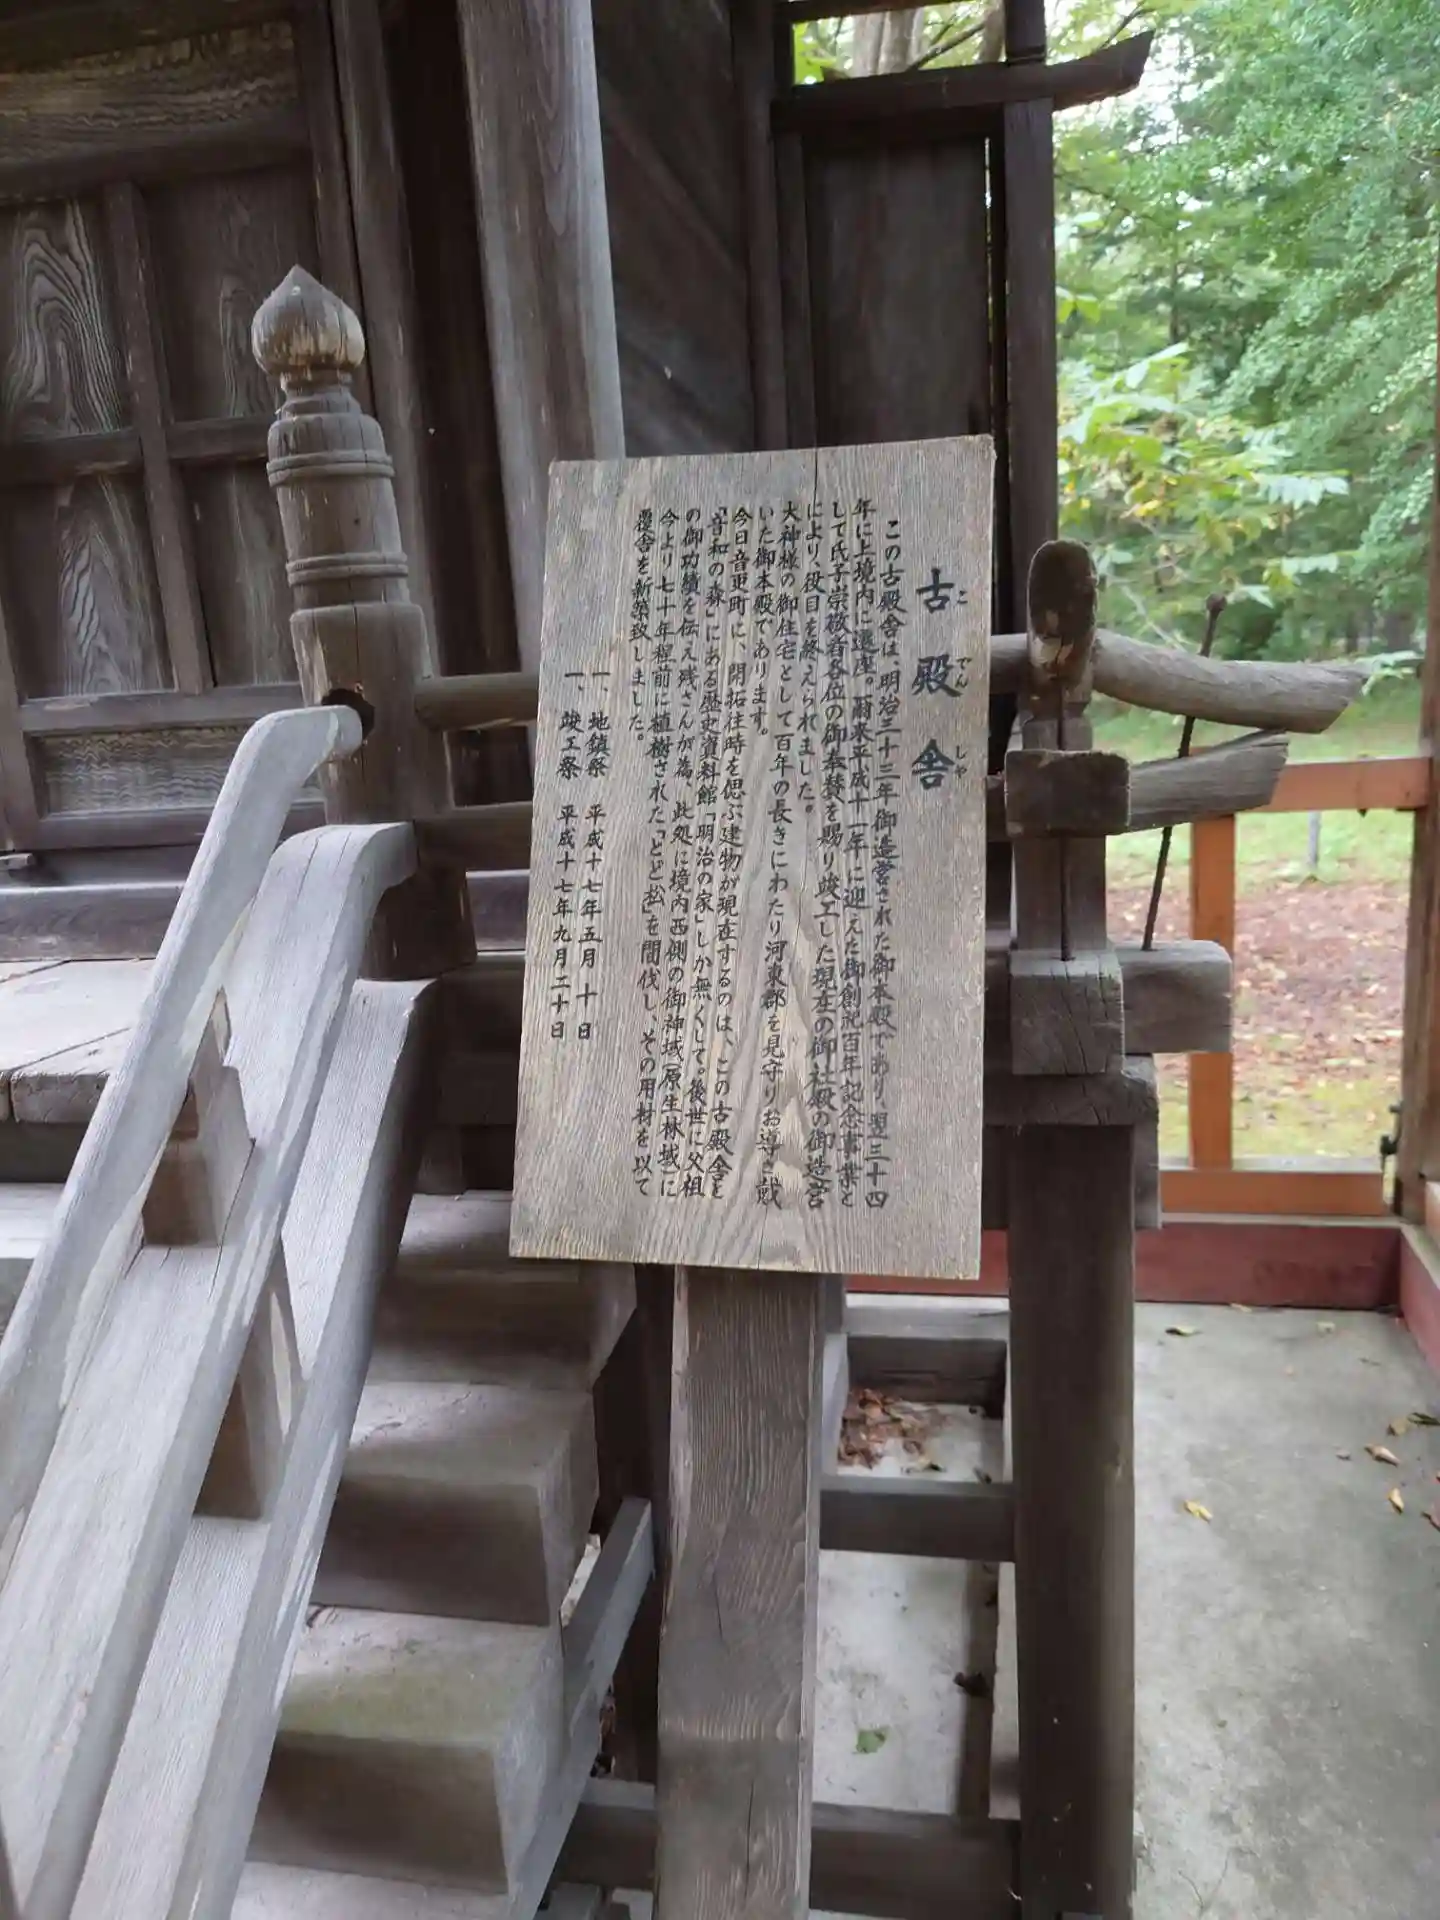 古殿舎
こでんしや
この古殿舎は、明治三十三年御造営された御本殿であり、翌三十四
年に上境内に遷座。爾来平成十一年に迎えた御創祀百年記念事業と
して氏子崇敬者各位の御奉賛を賜り竣工した現在の御社殿の御造営
により、役目を終えられました。
大神様の御住宅として百年の長きにわたり河東郡を見守りお導き戴
いた御本殿であります。
今日音更町に、開拓往時を偲ぶ建物が現在するのは、この古殿舎と
「音和の森」にある歴史資料館「明治の家」しか無くして。後世に父祖
の御功績を伝え残さんが為、此処に境内西側の御神域(原生林域)に
今より七十年程前に植樹された「とど松」を間伐し、その用材を以て
覆舎を新築致しました。
一、地鎮祭 平成十七年五月十日
一、竣工祭 平成十七年九月二十日